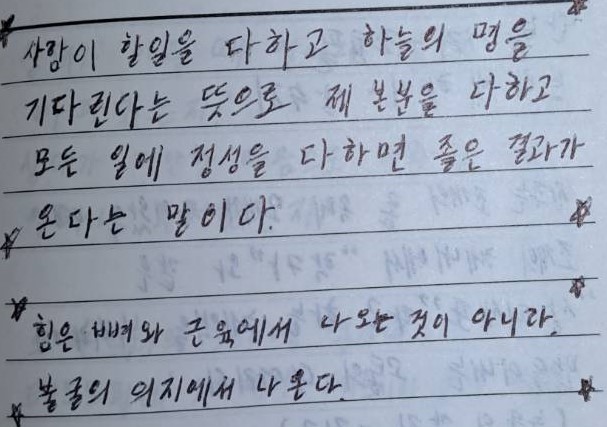 사람이 할일을 다하고 하늘의 명을
기다린다는 뜻으로 제 본분을 다하고
모든 일에 정성을 다하면 좋은 결과가
온다는 말이다.
힘은 뼈와 근육에서 나오는 것이 아니라,
불굴의 의지에서 나온다.